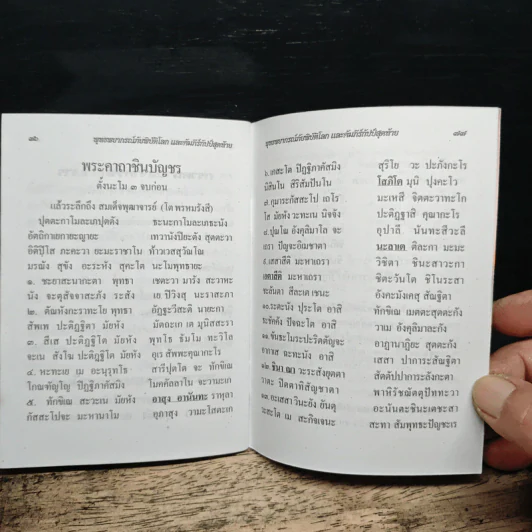 ๗๖ พุทธพยากรณ์ภัยพิบัติโลก และคัมภีร์กัปป์สุดท้าย
พระคาถาชินบัญชร
ตั้งนะโม ๓ จบก่อน
แล้วระลึกถึง สมเด็จพุฒาจารย์ (โต พรหมรังสี)
ปุตตะกาโมละเภปุตตัง ธะนะกาโมละเภธะนัง
อัตถิกาเยกายะญายะ เทวานังปิยะตัง สุตตะวา
อิติปิโส ภะคะวา ยะมะราชาโน ท้าวเวสสุวัณโณ
มรณัง สุขัง อะระหัง สุคะโต นะโมพุทธายะ
๑. ชะยาสะนากะตา พุทธา เชตะวา มารัง สะวาหะ
นัง จะตุสัจจาสะภัง ระสัง เย ปิวิงสุ นะราสะภา
๒. ตัณหังกะราทะโย พุทธา อัฏฐะวีสะติ นายะกา
สัพเพ ปะติฏฐิตา มัยหัง มัตถะเก เต มุนิสสะรา
๓. สีเส ปะติฏฐิโต มัยหัง พุทโธ ธัมโม ทะวิโล
จะเน สังโฆ ปะติฏฐิโต มัยหัง อุเร สัพพะคุณากะโร
๔. หะทะเย เม อะนุรุทโธ สารีปุตโต จะ ทักขิเณ
โกณฑัญโญ ปิฏฐิภาคัสมิง โมคคัลลาโน จะวามะเก
๕. ทักขิเณ สะวะเน มัยหัง อาสุง อานันทะ ราหุลา
กัสสะโปจะ มะหานาโม อุภาสุง วามะโสตะเก
พุทธพยากรณ์ภัยพิบัติโลก และคัมภีร์กัปป์สุดท้าย ๗๗
๖. เกสะโต ปิฏฐิภาคัสมิง สุริโย วะ ปะภังกะโร
นิสินโน สิริสัมปันโน โสภิโต มุนิ ปุงคะโว
๗. กุมาระกัสสะโป เถโร มะเหสี จิตตะวาทะโก
โส มัยหัง วะทะเน นิจจัง ปะติฏฐาสิ คุณากะโร
๘. ปุณโณ อังคุลิมาโล จะ อุปาลี นันทะสีวะลี
เถรา ปัญจะอิเมชาตา นะลาเต ติละกา มะมะ
๙. เสสาสีติ มะหาเถรา วิชิตา ชินะสาวะกา
เอตาสีติ มะหาเถรา ชิตะวันโต ชิโนระสา
ชะลันตา สีละเต เชนะ อังคะมังเคสุ สัณฐิตา
๑๐. ระตะนัง ปุระโต อาสิ ทักขิเณ เมตตะสุตตะกัง
ธะชัคคัง ปัจฉะโต อาสิ วาเม อังคุลิมาละกัง
๑๑. ขันธะโมระปะริตตัญจะ อาฏานาฏิยะ สุตตะกัง
อากาเส ฉะทะนัง อาสิ เสสา ปาการะสัณฐิตา
วะระสังยุตตา สัตตัปปาการะลังกะตา
วาตะ ปิตตาทิสัญชาตา พาหิรัชฌัตตุปัททะวา
๑๓. อะเสสา วินะยัง ยันตุ อะนันตะชินะเตชะสา
วะสะโต เม สะกิจเจนะ สะทา สัมพุทธะปัญชะเร